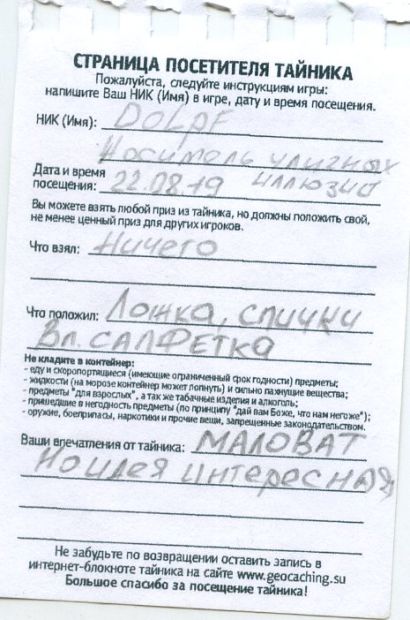 СТРАНИЦА ПОСЕТИТЕЛЯ ТАЙНИКА
Пожалуйста, следуйте инструкциям игры:
напишите Ваш НИК (Имя) в игре, дату и время посещения.
НИК (Имя): DOLPF
Носитель уличных
Дата и время
посещения: 22.08.19 иллюзий
Вы можете взять любой приз из тайника, но должны положить свой,
не менее ценный приз для других игроков.
Что взял: Ничего
Что положил: Ложка, спички
Вл. САЛФЕТКА
Не кладите в контейнер:
- еду и скоропортящиеся (имеющие ограниченный срок годности) предметы;
- жидкости (на морозе контейнер может лопнуть) и сильно пахнущие вещества;
- предметы "для взрослых", а так же табачные изделия и алкоголь;
- пришедшие в негодность предметы (по принципу "дай вам Боже, что нам негоже");
- оружие, боеприпасы, наркотики и прочие вещи, запрещенные законодательством.
Ваши впечатления от тайника: МАЛОВАТ
Но идея интересная
Не забудьте по возвращении оставить запись в
интернет-блокноте тайника на сайте www.geocaching.su
Большое спасибо за посещение тайника!